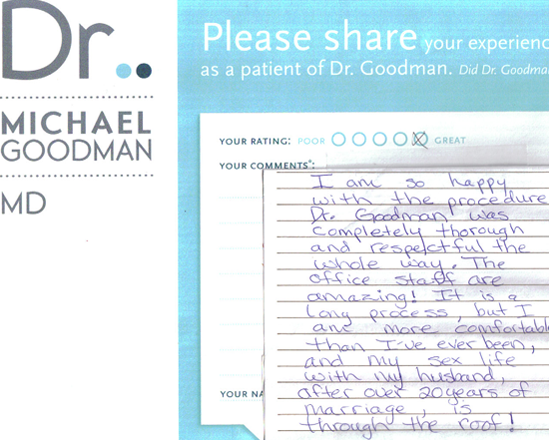 Dr..
MICHAEL
GOODMAN
MD
Please share your experienc
as a patient of Dr. Goodman. Did Dr. Goodma
YOUR RATING: POOR GREAT
YOUR COMMENTS*:
I am so happy
with the procedure
Dr. Goodman was
completely thorough
and respectful the
whole way. The
office staff are
amazing! It is a
long process, but I
am more comfortabl
than I've ever been,
and my sex life
with my husband,
after over 20 years of
marriage, is
through the roof!
YOUR NA